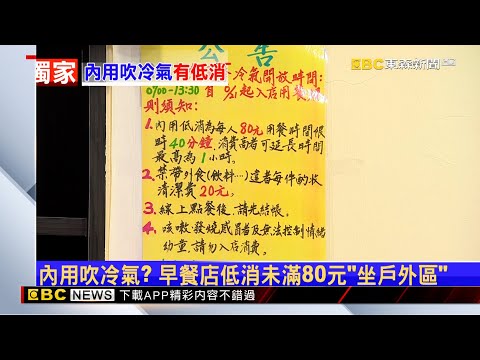 獨家
內用吹冷氣有低消
EBC東森新聞
公告
冷氣開放時間:
0700-13:30 自 9/1起入店用餐
則須知:
1.內用低消為每人80元用餐時間限
時40分鐘,消費高者可延長時間
最高為1小時。
2.禁帶外食(飲料…)違者每件酌收
清潔費20元。
3.線上點餐後,請先結帳。
4.咳嗽.發燒感冒者及無法控制情緒
幼童,請勿入店消費。
內用吹冷氣? 早餐店低消未滿80元"坐戶外區"
EBC NEWS
下載APP精彩內容不錯過